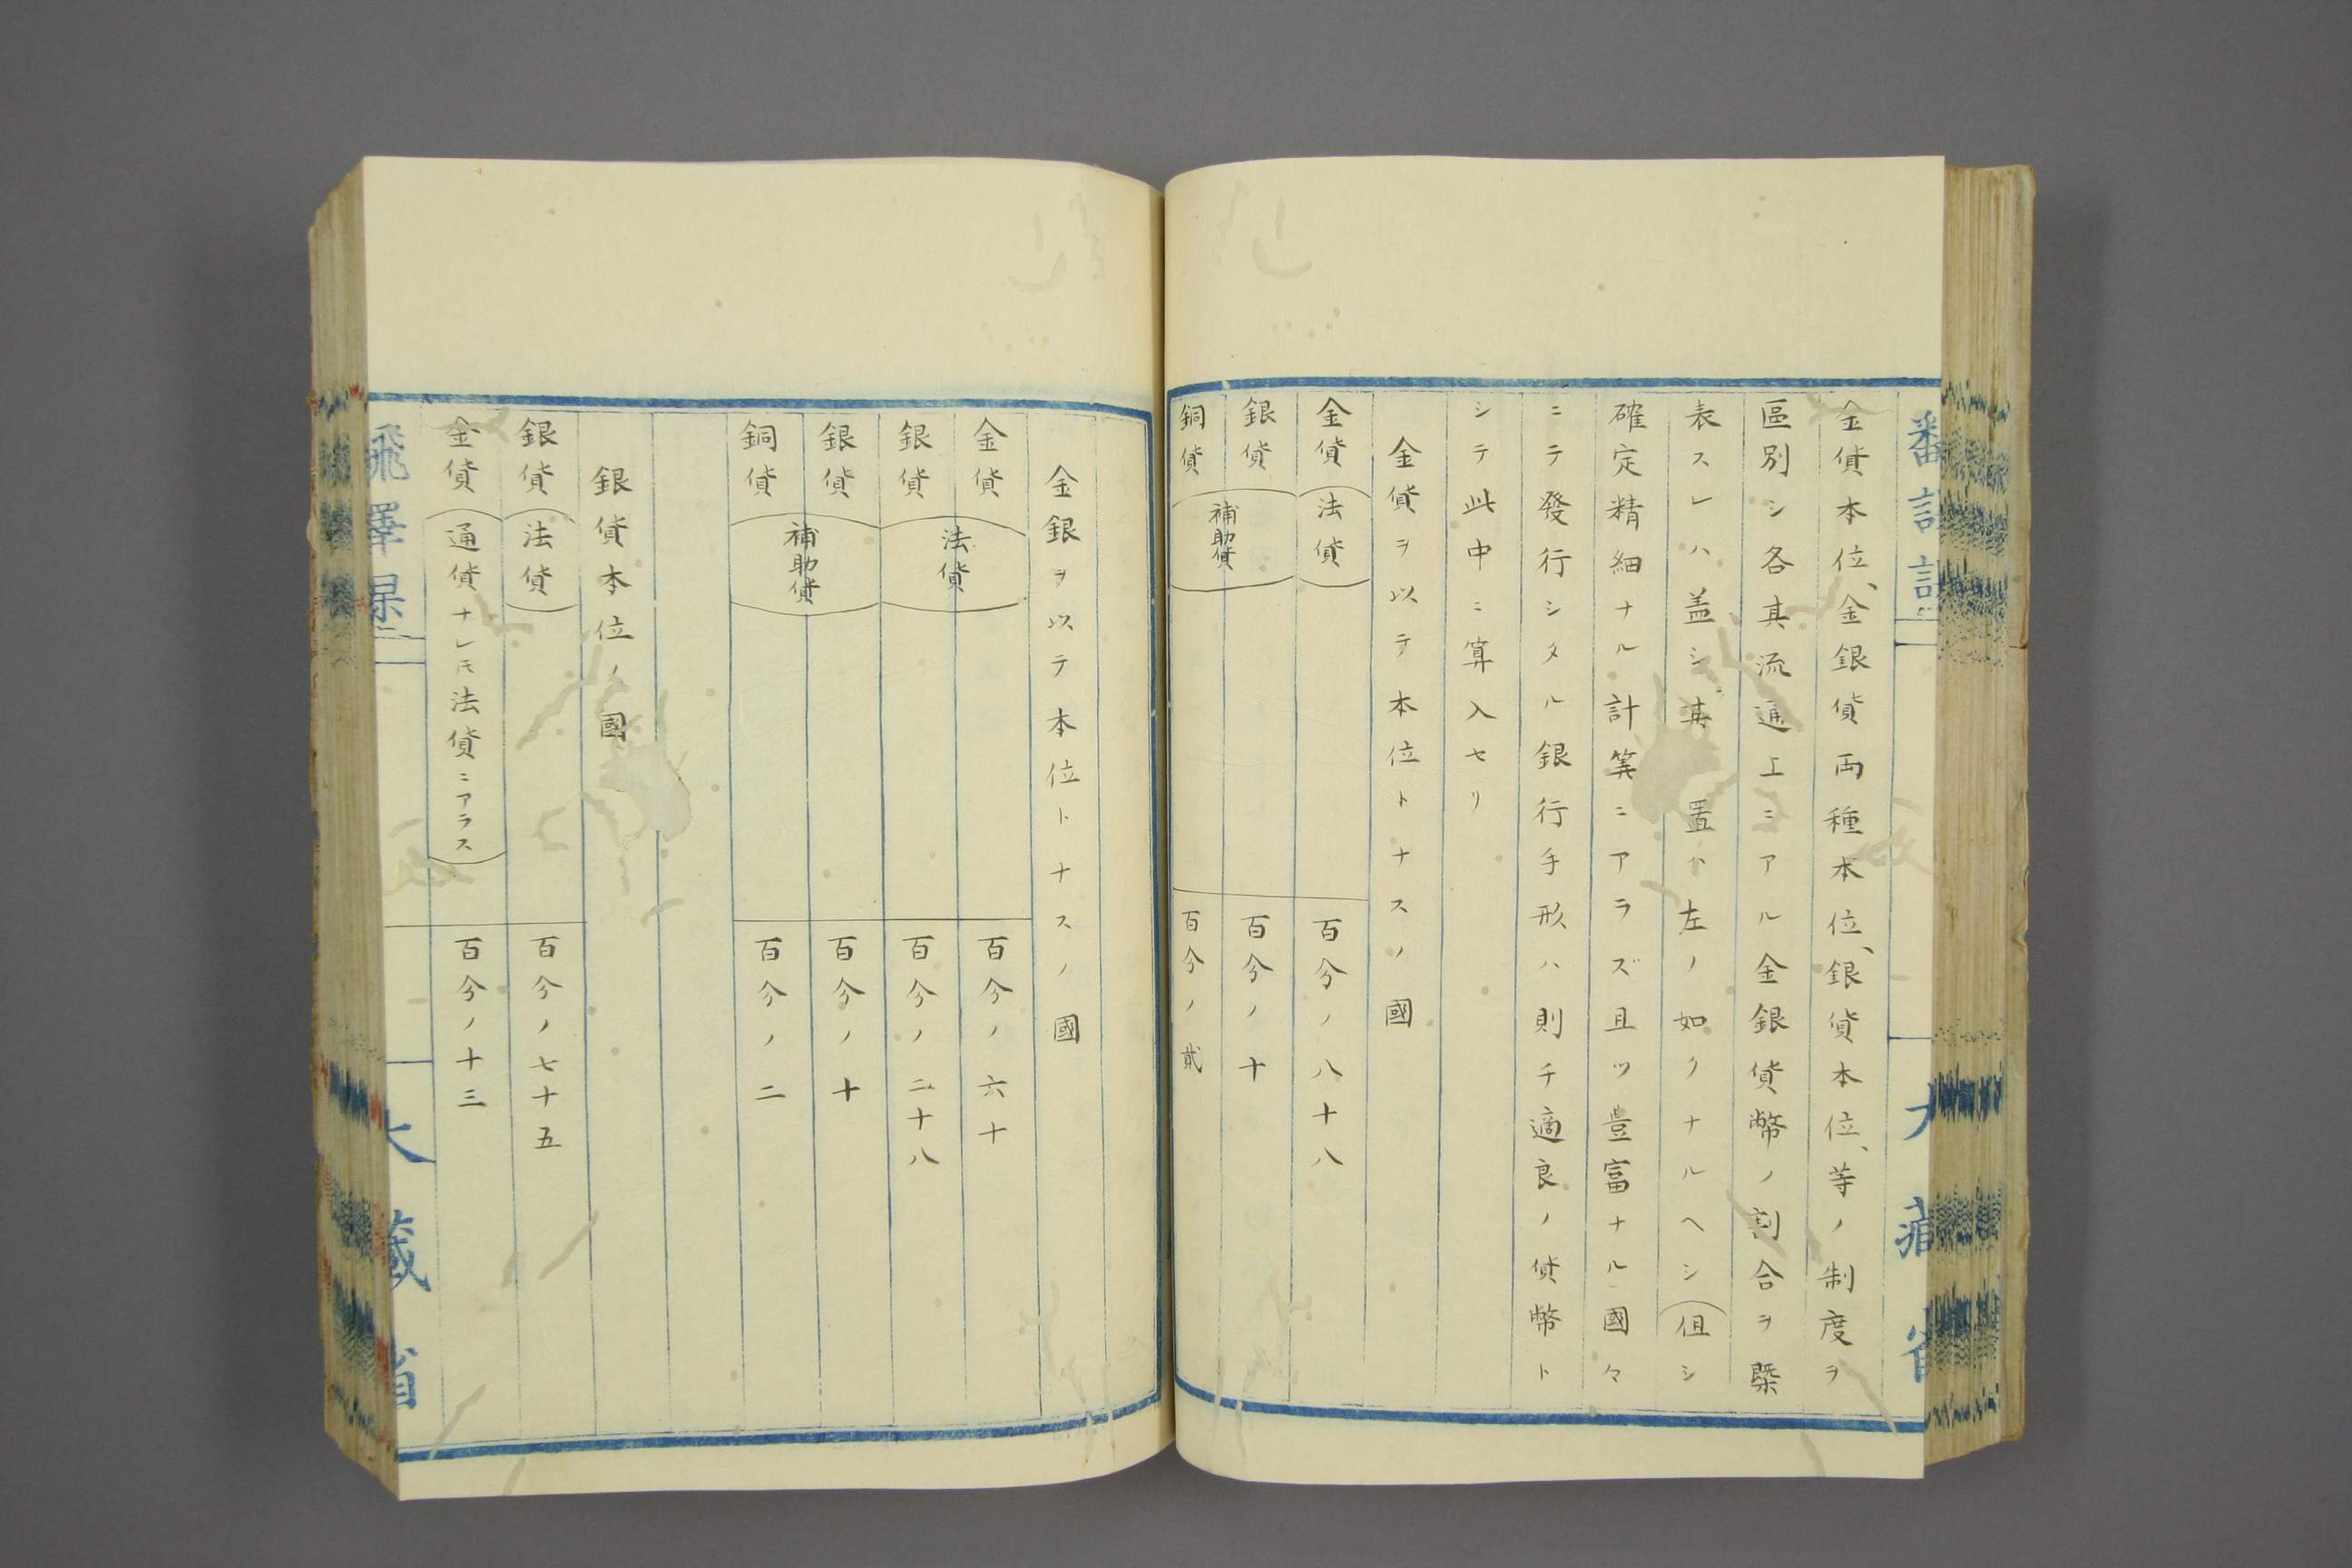 金貨本位、金銀貨両種本位、銀貨本位、等ノ制度ヲ
區別シ各其流通上ニアル金銀貨幣ノ割合ヲ槩
表スレハ盖シ其 置 左ノ如クナルヘシ(但シ
確定精細ナル計筭ニアラズ且ツ豊富ナル國々
ニテ發行シタル銀行手形ハ則チ適良ノ貨幣ト
シテ此中ニ算入セリ
金貨ヲ以テ本位トナスノ國
金貨(法貨) 百分ノ八十八
銀貨 百分ノ十
銅貨 百分ノ貮
(補助貨)
金銀ヲ以テ本位トナスノ國
金貨 百分ノ六十
銀貨 百分ノ二十八
(法貨)
銀貨 百分ノ十
銅貨 百分ノ二
(補助貨)
銀貨本位ノ國
銀貨(法貨) 百分ノ七十五
金貨(通貨ナレ𪜈法貨ニアラス) 百分ノ十三
大藏省